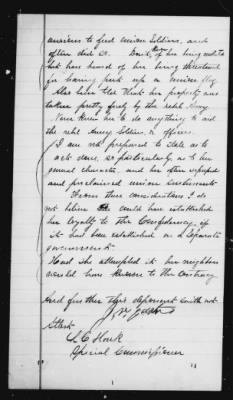 anxious to feed union Soldiers, and
often did so. Don't of her being molested
but has heard of her being threatened
for having put up a union flag
Also knew that her property was
taken pretty freely by the rebel Army
Never knew her to do anything to aid
the rebel Army Soldiers or officers.
I am not prepared to state as to
acts done, so particularly, as to her
general character, and her often repeated
and proclaimed union sentiments
From these considerations I do
not believe she could have established
her loyalty to the Confederacy if
it had been established as a Separate
government.
Had she attempted it her neighbors
would have known to the contrary
And further this deponent saith not
J.
Attest
L C Houk
Special Commissioner